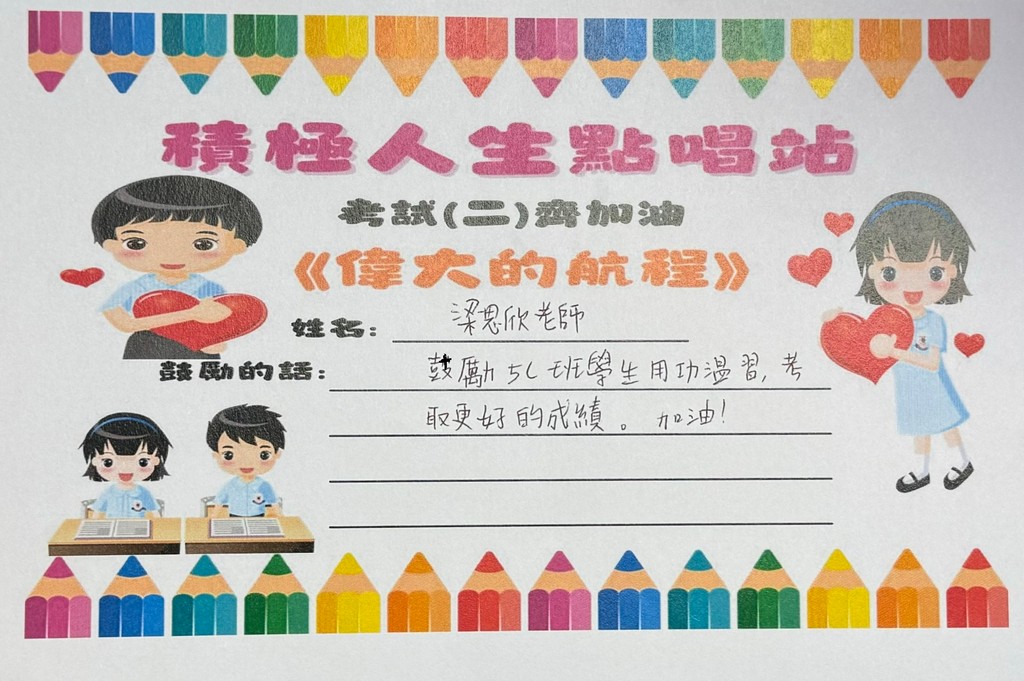 積極人生點唱站
考試(二)齊加油
《偉大的航程》
姓名: 梁思欣老師
鼓勵的話: 鼓勵5C班學生用功溫習,考
取更好的成績。加油!